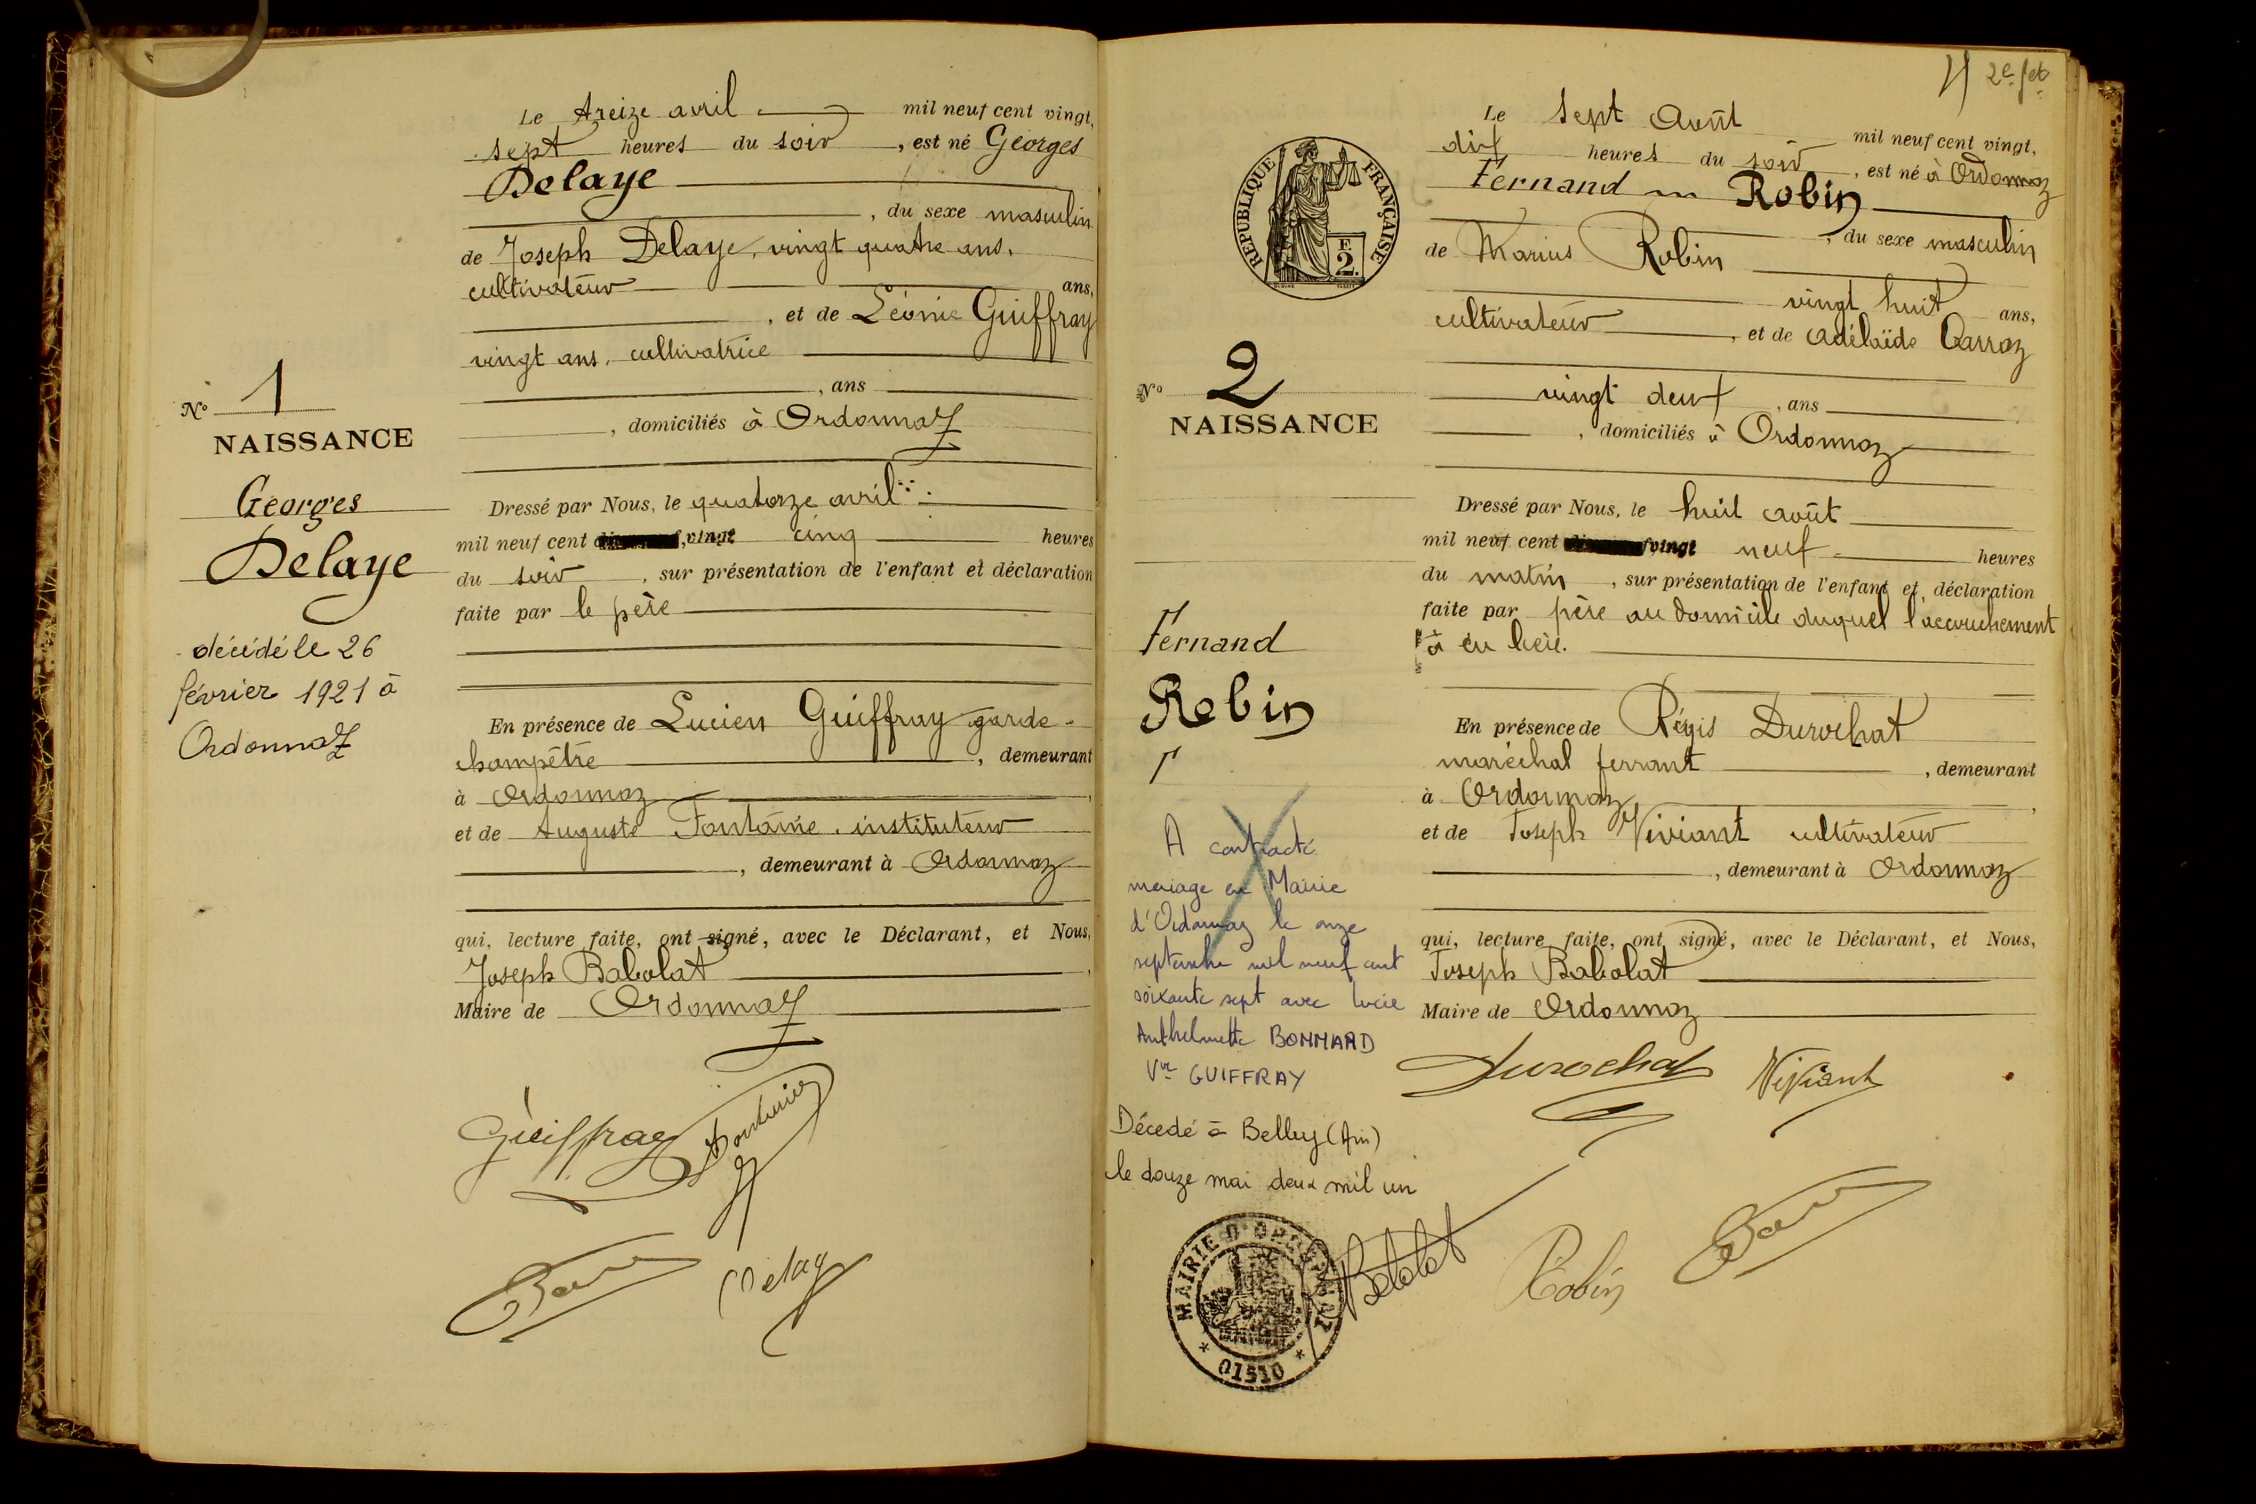 Le treize avril mil neuf cent vingt,
sept heures du soir, est né Georges
Delaye
, du sexe masculin
de Joseph Delaye, vingt quatre ans,
cultivateur ans,
, et de Léonie Guiffray
vingt ans, cultivatrice
, ans
, domiciliés à Ordonnaz
Nº 1
NAISSANCE
Georges
Delaye
décédé le 26
février 1921 à
Ordonnaz
Dressé par Nous, le quatorze avril
mil neuf cent vingt cinq heures
du soir, sur présentation de l'enfant et déclaration
faite par le père
En présence de Lucien Guiffray garde-
champêtre, demeurant
à Ordonnaz,
et de Auguste Fontanie, instituteur
, demeurant à Ordonnaz
qui, lecture faite, ont signé, avec le Déclarant, et Nous,
Joseph Babolat,
Maire de Ordonnaz
Guiffray
Delay
2e fet
Le sept Août mil neuf cent vingt,
dix heures du soir, est né à Ordonnaz
Fernand Robin
, du sexe masculin
de Marius Robin
vingt huit ans,
cultivateur, et de Adélaïde Carraz
vingt deux, ans
, domiciliés à Ordonnaz
RÉPUBLIQUE FRANÇAISE
F.
2.
Nº 2
NAISSANCE
Fernand
Robin
A contracté
mariage en Mairie
d'Ordonnaz le onze
septembre mil neuf cent
soixante sept avec Lucie
Anthelmette BONNARD
Vve GUIFFRAY
Décédé à Belley (Ain)
le douze mai deux mil un
MAIRIE D'ORDONNAZ
* 01510 *
Dressé par Nous, le huit août
mil neuf cent vingt neuf heures
du matin, sur présentation de l'enfant et, déclaration
faite par père au domicile duquel l'accouchement
à eu lieu.
En présence de Régis Durochat
maréchal ferrant, demeurant
à Ordonnaz,
et de Joseph Viviant cultivateur
, demeurant à Ordonnaz
qui, lecture faite, ont signé, avec le Déclarant, et Nous,
Joseph Babolat
Maire de Ordonnaz
Durochat Viviant
Robin